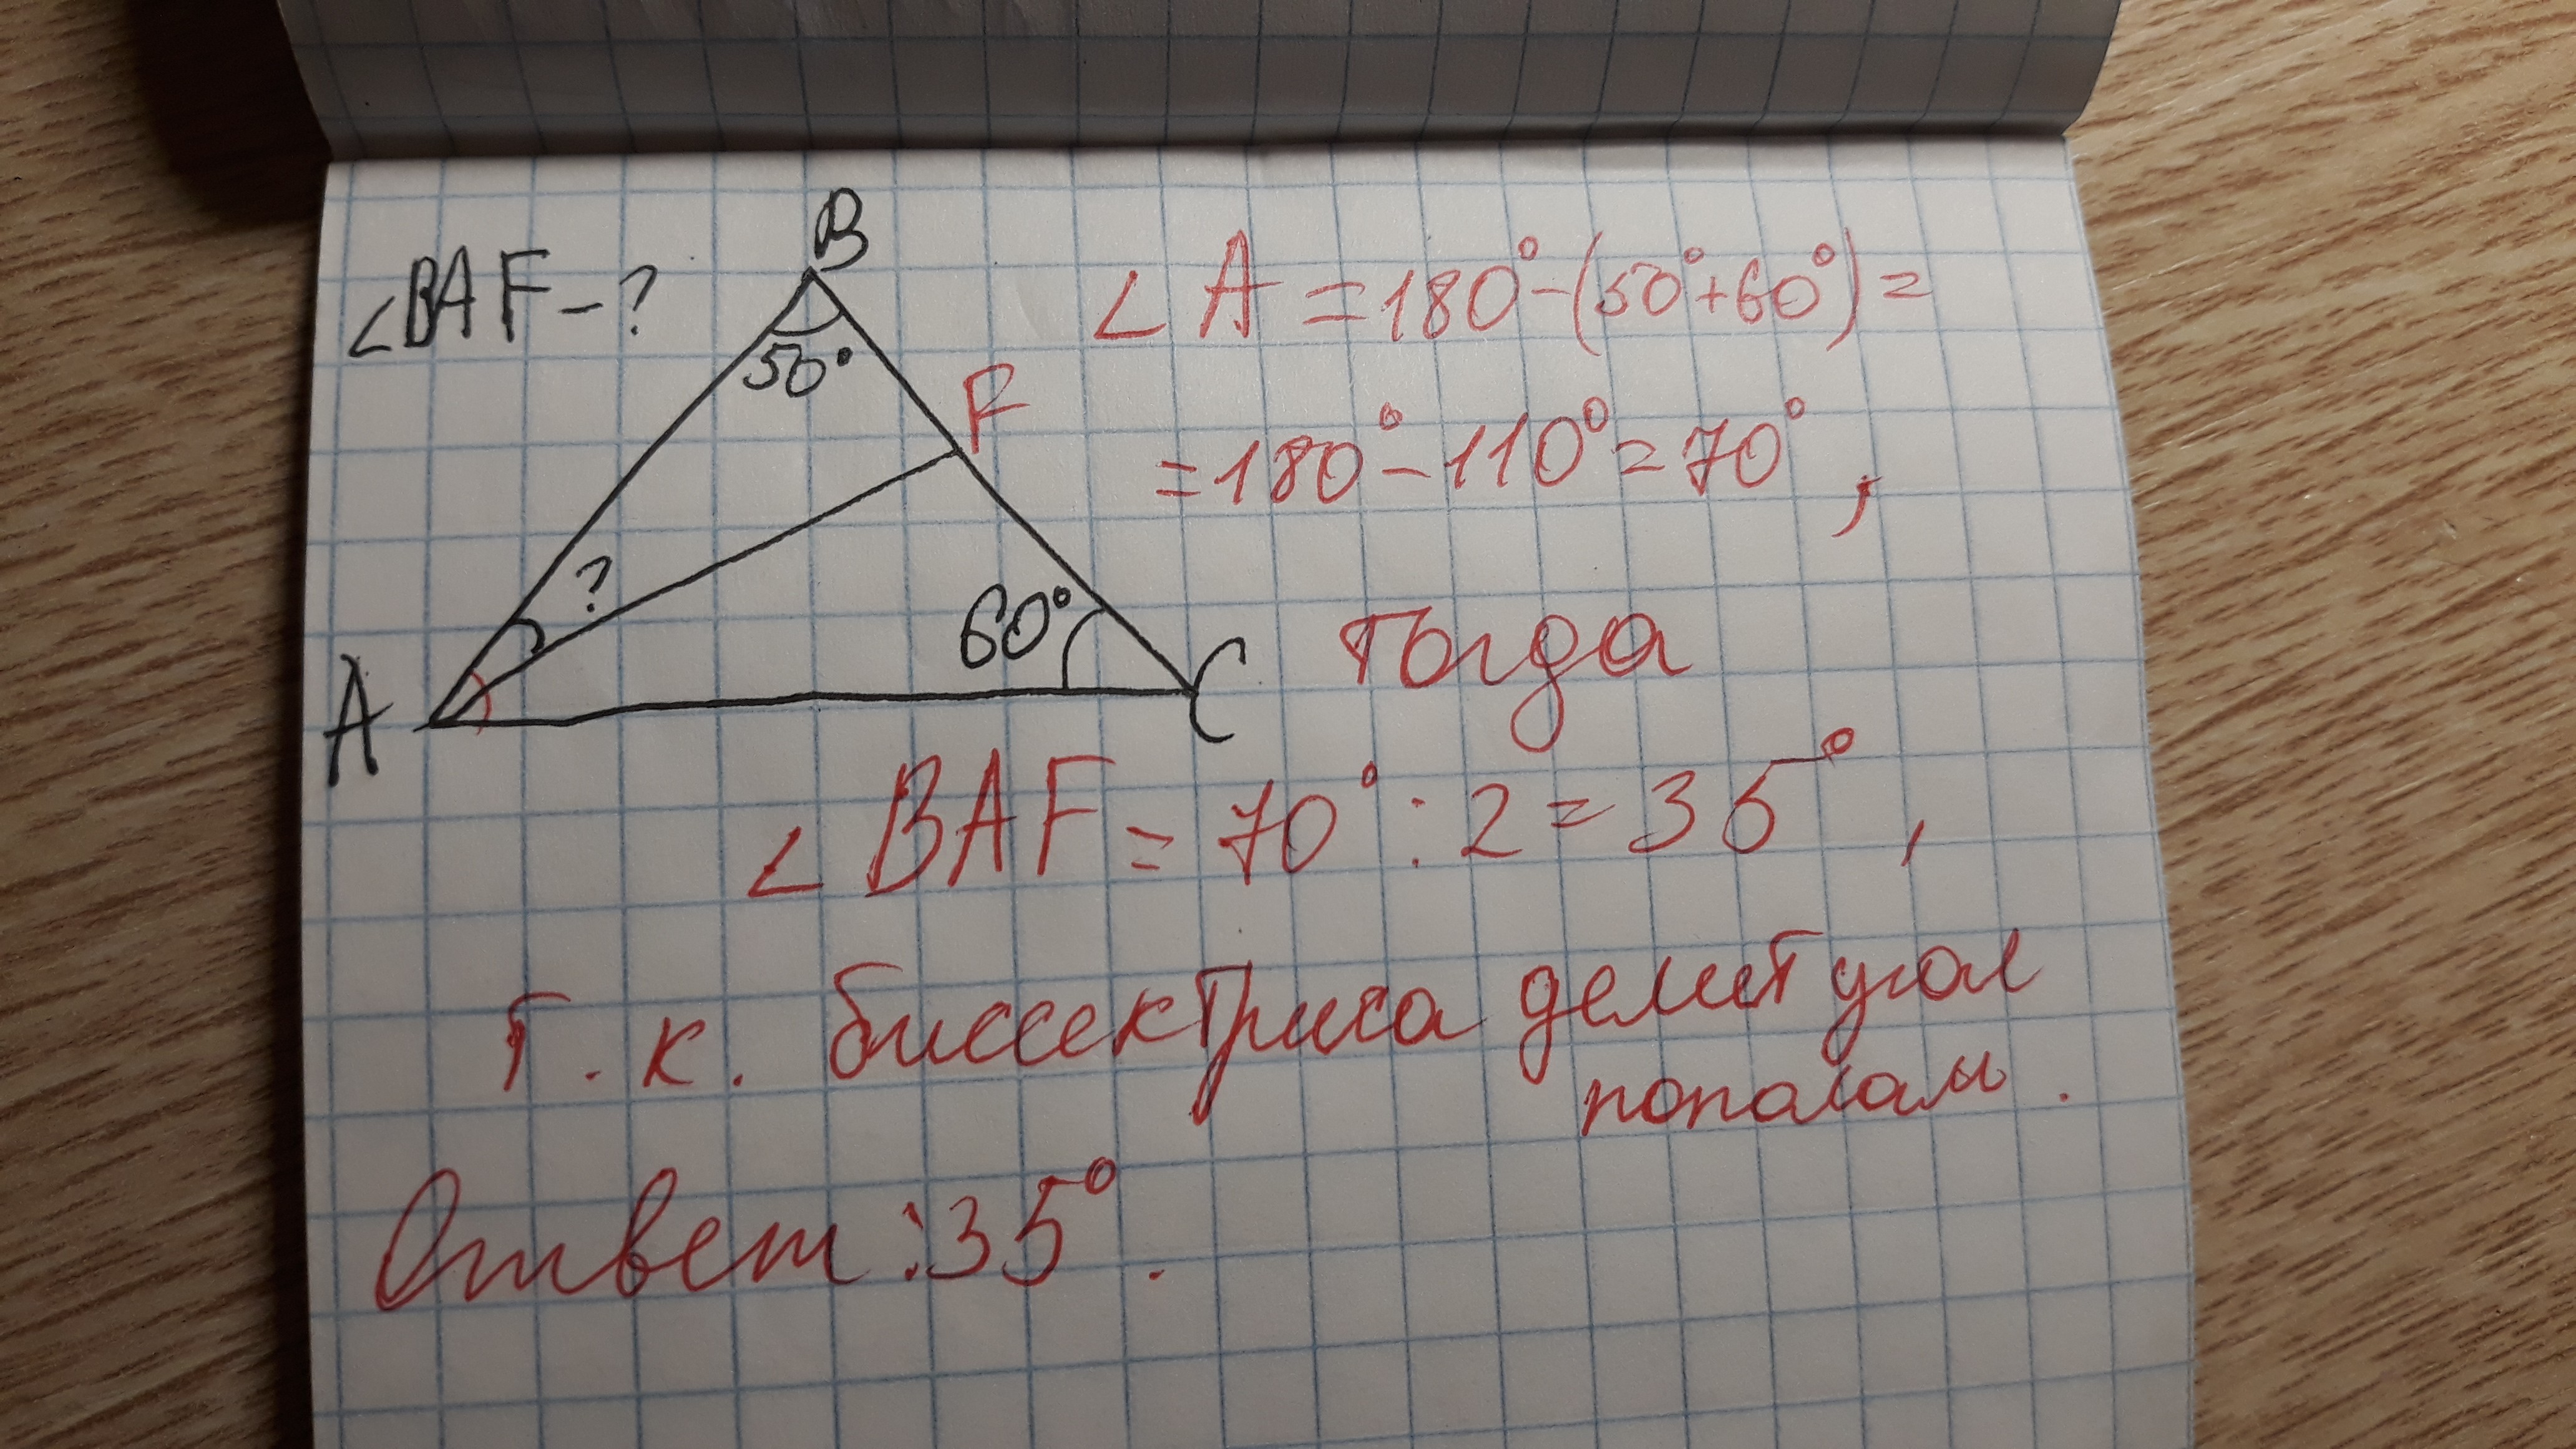 ∠BAF - ?
B
50°
F
?
60°
A
C
∠A = 180° - (50° + 60°) =
= 180° - 110° = 70° ,
тогда
∠BAF = 70° : 2 = 35° ,
т. к. биссектриса делит угол
пополам .
Ответ : 35° .